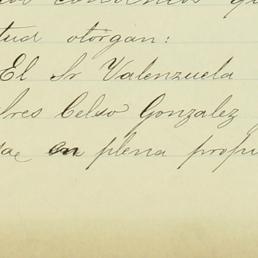 tud otorgan:
El Sr Valenzuela
Celso Gonzalez
en plena propi